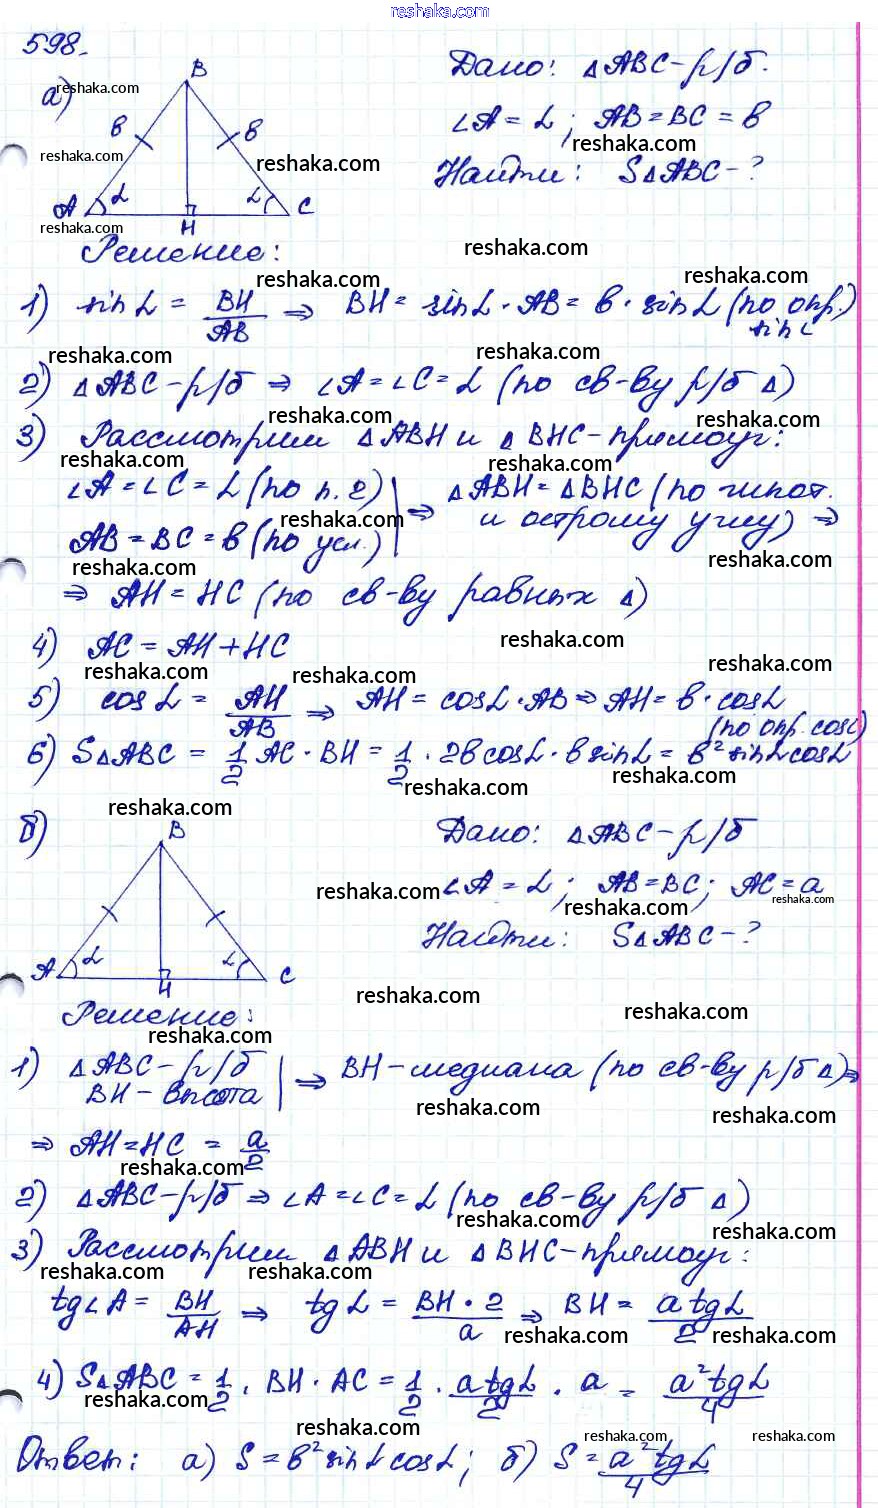 reshaka.com
598.
а)
B
в
в
A
L
L
C
H
Дано: △ABC-р/б.
∠A = L; AB=BC=в
Найти: S△ABC-?
Решение:
1) sin L = BH/AB ⇒ BH = sin L · AB = в · sin L (по опр. sin L)
2) △ABC-р/б ⇒ ∠A=∠C=L (по св-ву р/б △)
3) Рассмотрим △ABH и △BHC-прямоуг:
∠A=∠C=L (по п.2) | ⇒ △ABH=△BHC (по гипот.
AB=BC=в (по усл.) | и острому углу) ⇒
⇒ AH=HC (по св-ву равных △)
4) AC = AH+HC
5) cos L = AH/AB ⇒ AH = cos L · AB ⇒ AH = в · cos L
(по опр. cos L)
6) S△ABC = 1/2 AC · BH = 1/2 · 2в cos L · в sin L = в² sin L cos L
б)
B
A
L
L
C
H
Дано: △ABC-р/б
∠A = L; AB=BC; AC=a
Найти: S△ABC-?
Решение:
1) △ABC-р/б | ⇒ BH-медиана (по св-ву р/б △) ⇒
BH-высота |
⇒ AH=HC = a/2
2) △ABC-р/б ⇒ ∠A=∠C=L (по св-ву р/б △)
3) Рассмотрим △ABH и △BHC-прямоуг:
tg∠A = BH/AH ⇒ tg L = BH · 2/a ⇒ BH = a tg L/2
4) S△ABC = 1/2 · BH · AC = 1/2 · a tg L/2 · a = a² tg L/4
Ответ: а) S = в² sin L cos L; б) S = a² tg L/4